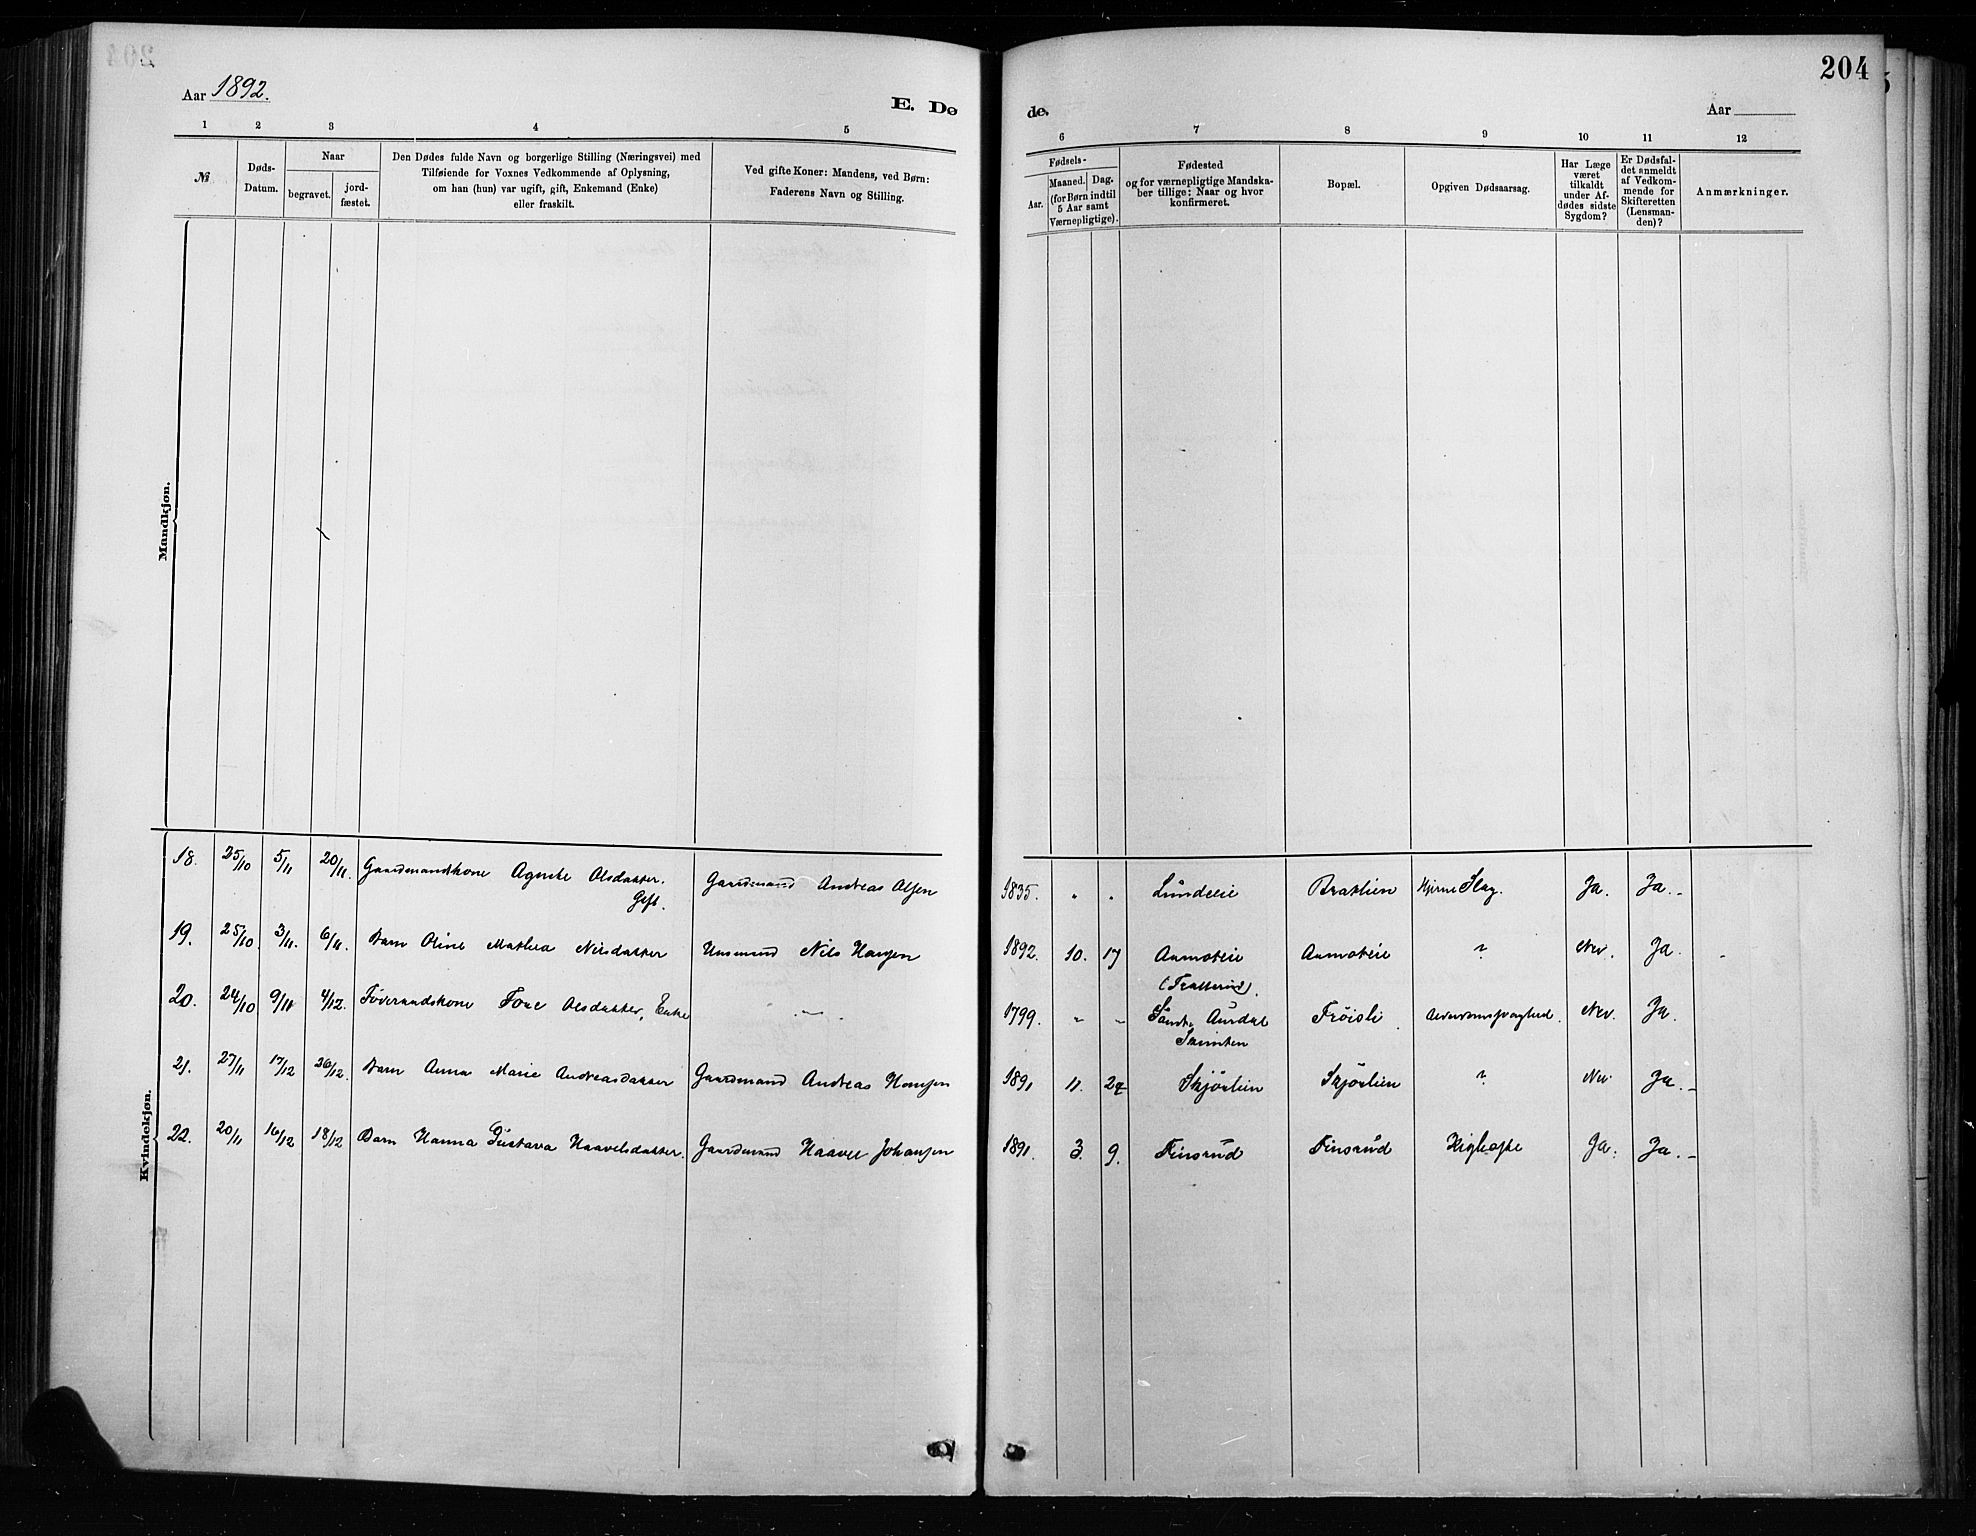 204
Aar 1892.
E. Dø
de.
Aar
1 2 3 4 5
6 7 8 9 10 11 12
№
Døds-
Datum.
Naar
begravet.
jord-
fæstet.
Den Dødes fulde Navn og borgerlige Stilling (Næringsvei) med
Tilføiende for Voxnes Vedkommende af Oplysning,
om han (hun) var ugift, gift, Enkemand (Enke)
eller fraskilt.
Ved gifte Koner: Mandens, ved Børn:
Faderens Navn og Stilling.
Fødsels-
Aar.
Maaned. Dag.
(for Børn indtil
5 Aar samt
Værnepligtige).
Fødested
og for værnepligtige Mandska-
ber tillige: Naar og hvor
konfirmeret.
Bopæl.
Opgiven Dødsaarsag.
Har Læge
været
tilkaldt
under Af-
dødes sidste
Sygdom?
Er Dødsfal-
det anmeldt
af Vedkom-
mende for
Skifteretten
(Lensman-
den)?
Anmærkninger.
Mandkjøn.
Kvindekjøn.
18. 25/10 5/11 20/11. Gaardmandskone Agnete Olsdatter. Gift. Gaardmand Andreas Olsen 1835. " " Lundeeie Bratlien Hjerne Slag. Ja. Ja.
19. 25/10. 3/11. 6/11. Barn Oline Mathea Nilsdatter Nils Hansen 1892. 10. 17 Aamoteie Aamoteie ? Nei. Ja.
20. 24/10 9/11 4/12. Føderaadskone Olsdatter, Enke " 1799. " " Søndr. Aurdal Frøisli Alderdomssvaghed. Nei. Ja.
21. 27/11 17/12 26/12. Barn Anna Marie Andreasdatter Gaardmand Andreas Hansen 1891 11. 24 Skjørlien Skjørlien ? Nei Ja.
22. 20/11 16/12 18/12 Barn Hanna Gustava Haavelsdatter. Gaardmand Haavel Johansen 1891. 3. 9. Finsrud Finsrud Kighoste Ja. Ja.